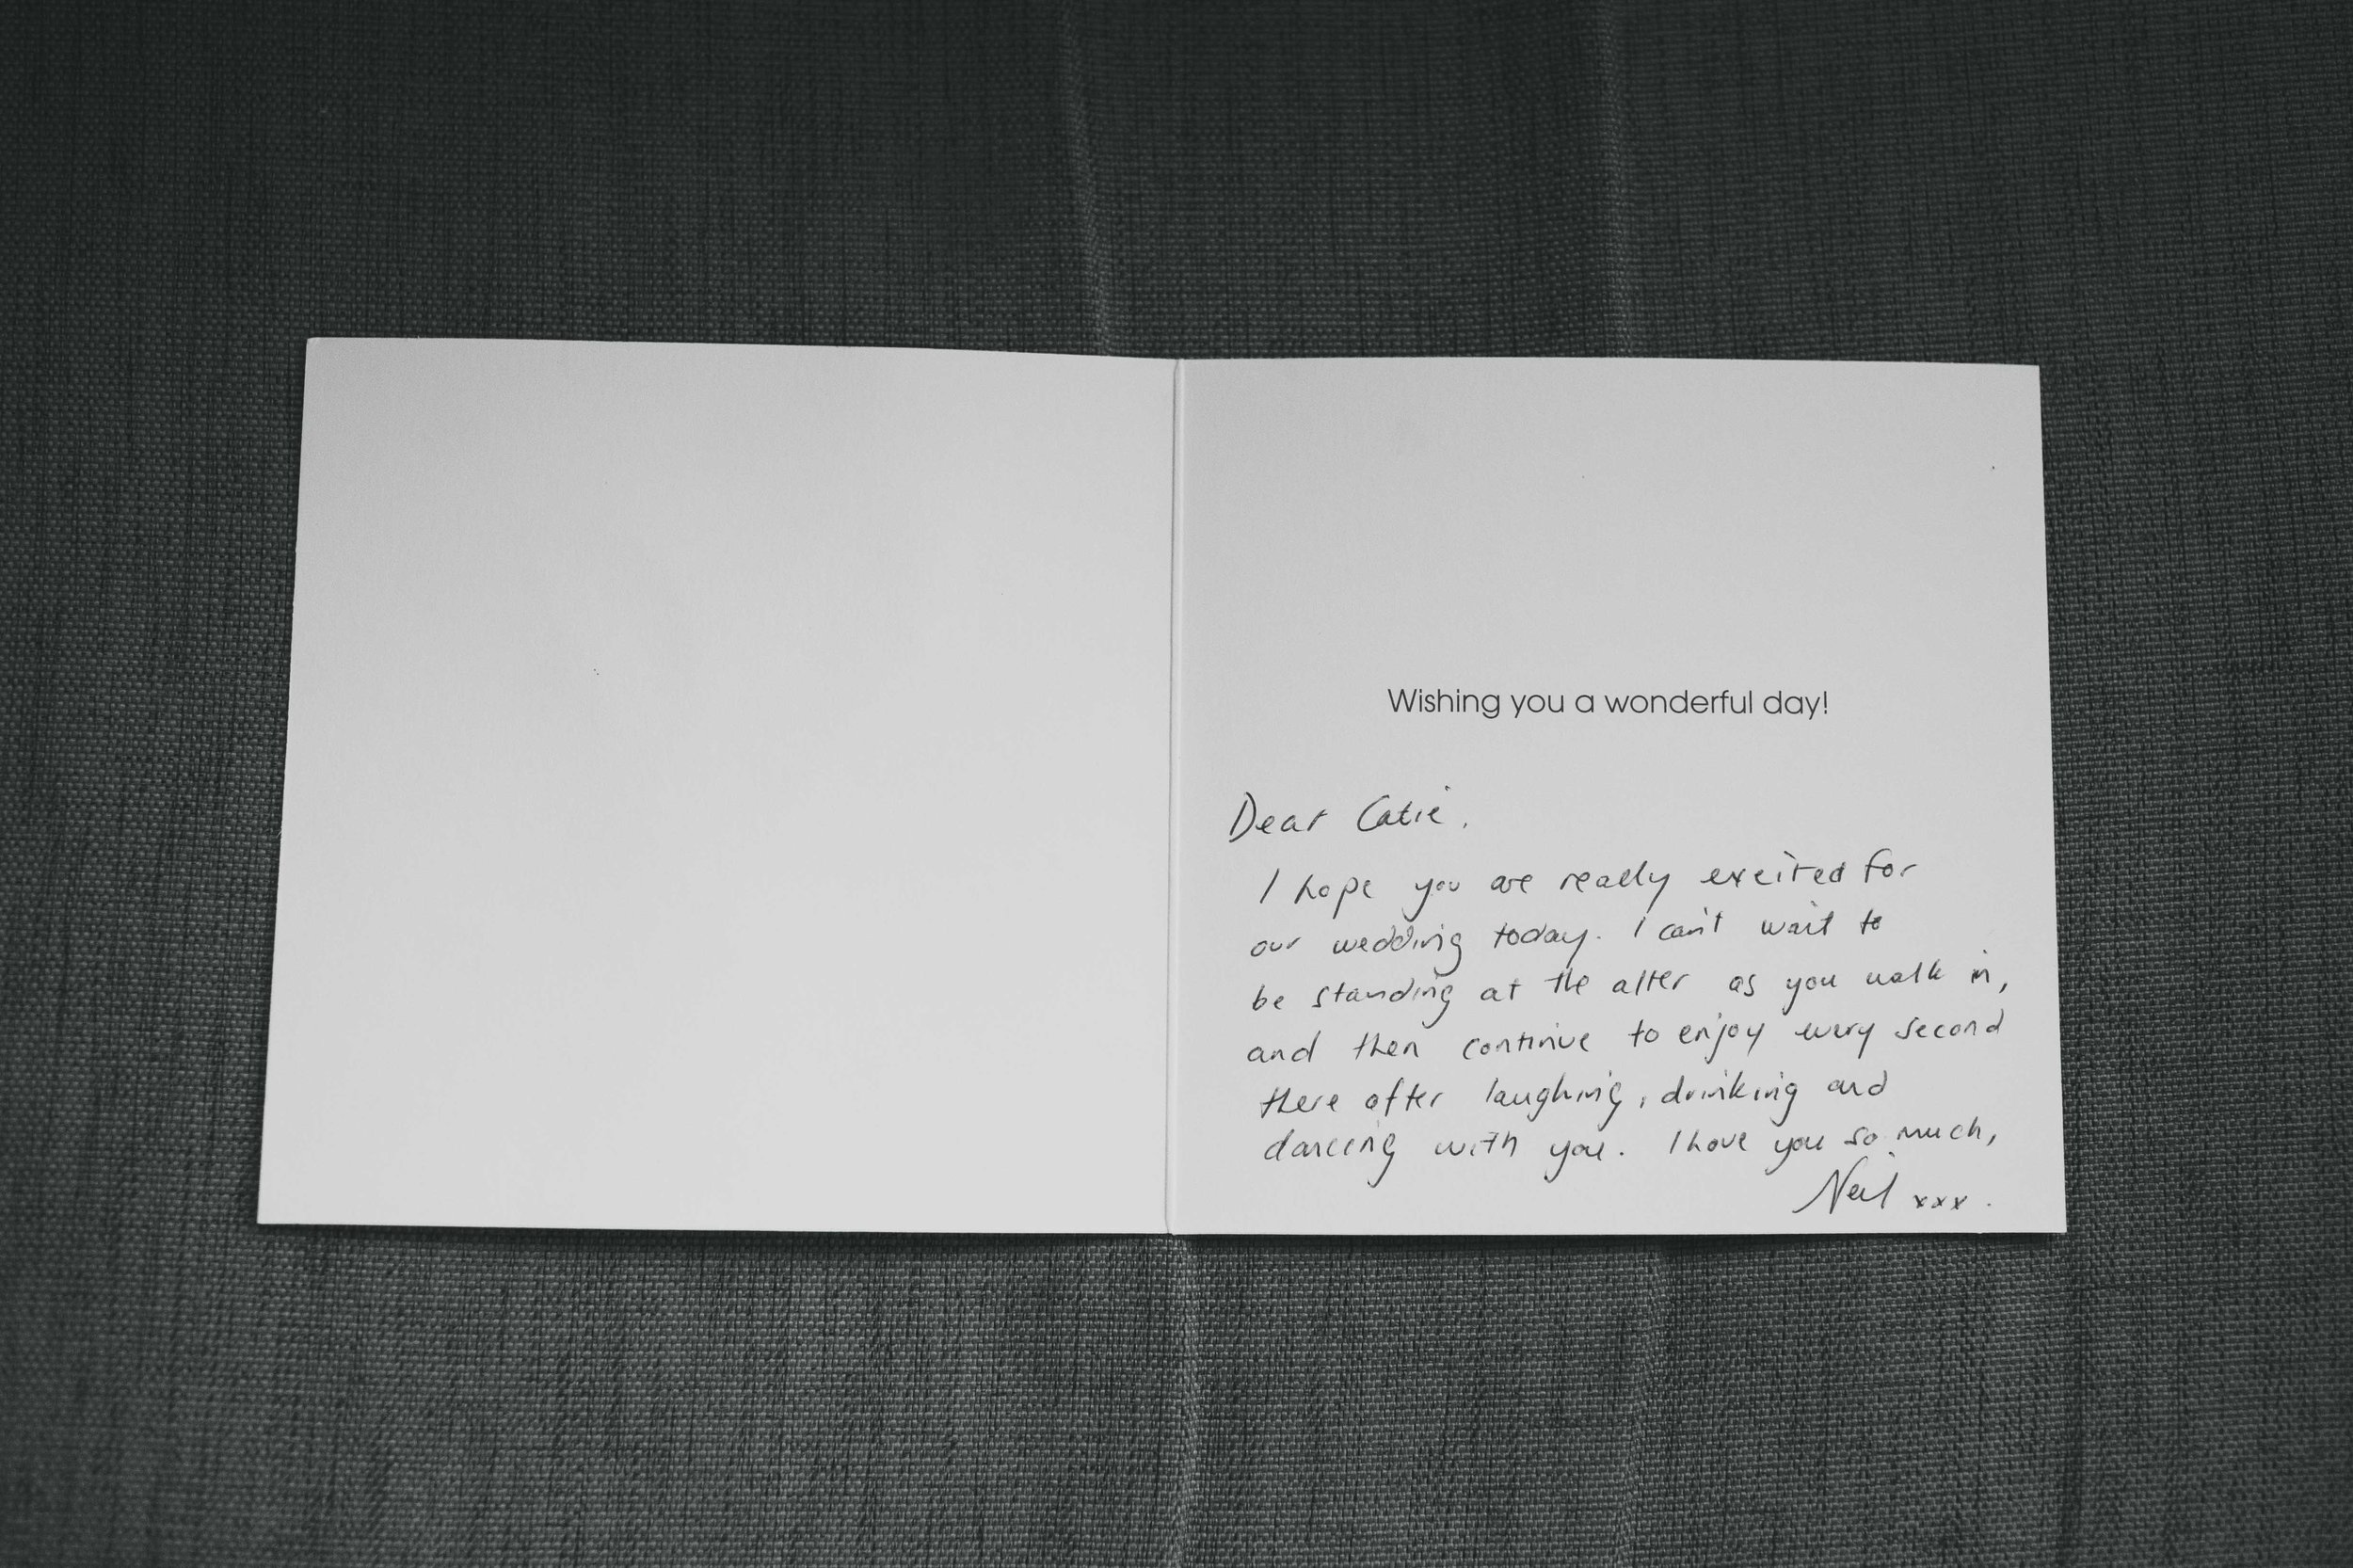 Wishing you a wonderful day!
Dear Catie,
I hope you are really excited for
our wedding today. I can't wait to
be standing at the alter as you walk in,
and then continue to enjoy every second
there after laughing, drinking and
dancing with you. I love you so much,
Neil xxx.